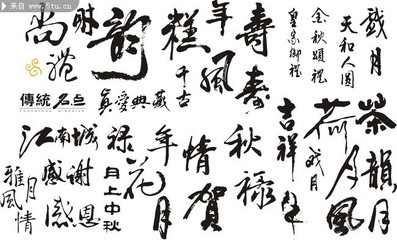 来自 www.5tu.cn
尚禮
啉
韵
糕
年
風
千古
真愛典藏
傳統 名点
壽
壽
皇家御禮
金秋頌禮
天和人圆
歲月
茶韻月
荷月風
歲月
吉祥年
秋
禄
情賀
年
花月
禄
月上中秋
江南城
感謝
感恩
雅風
月情